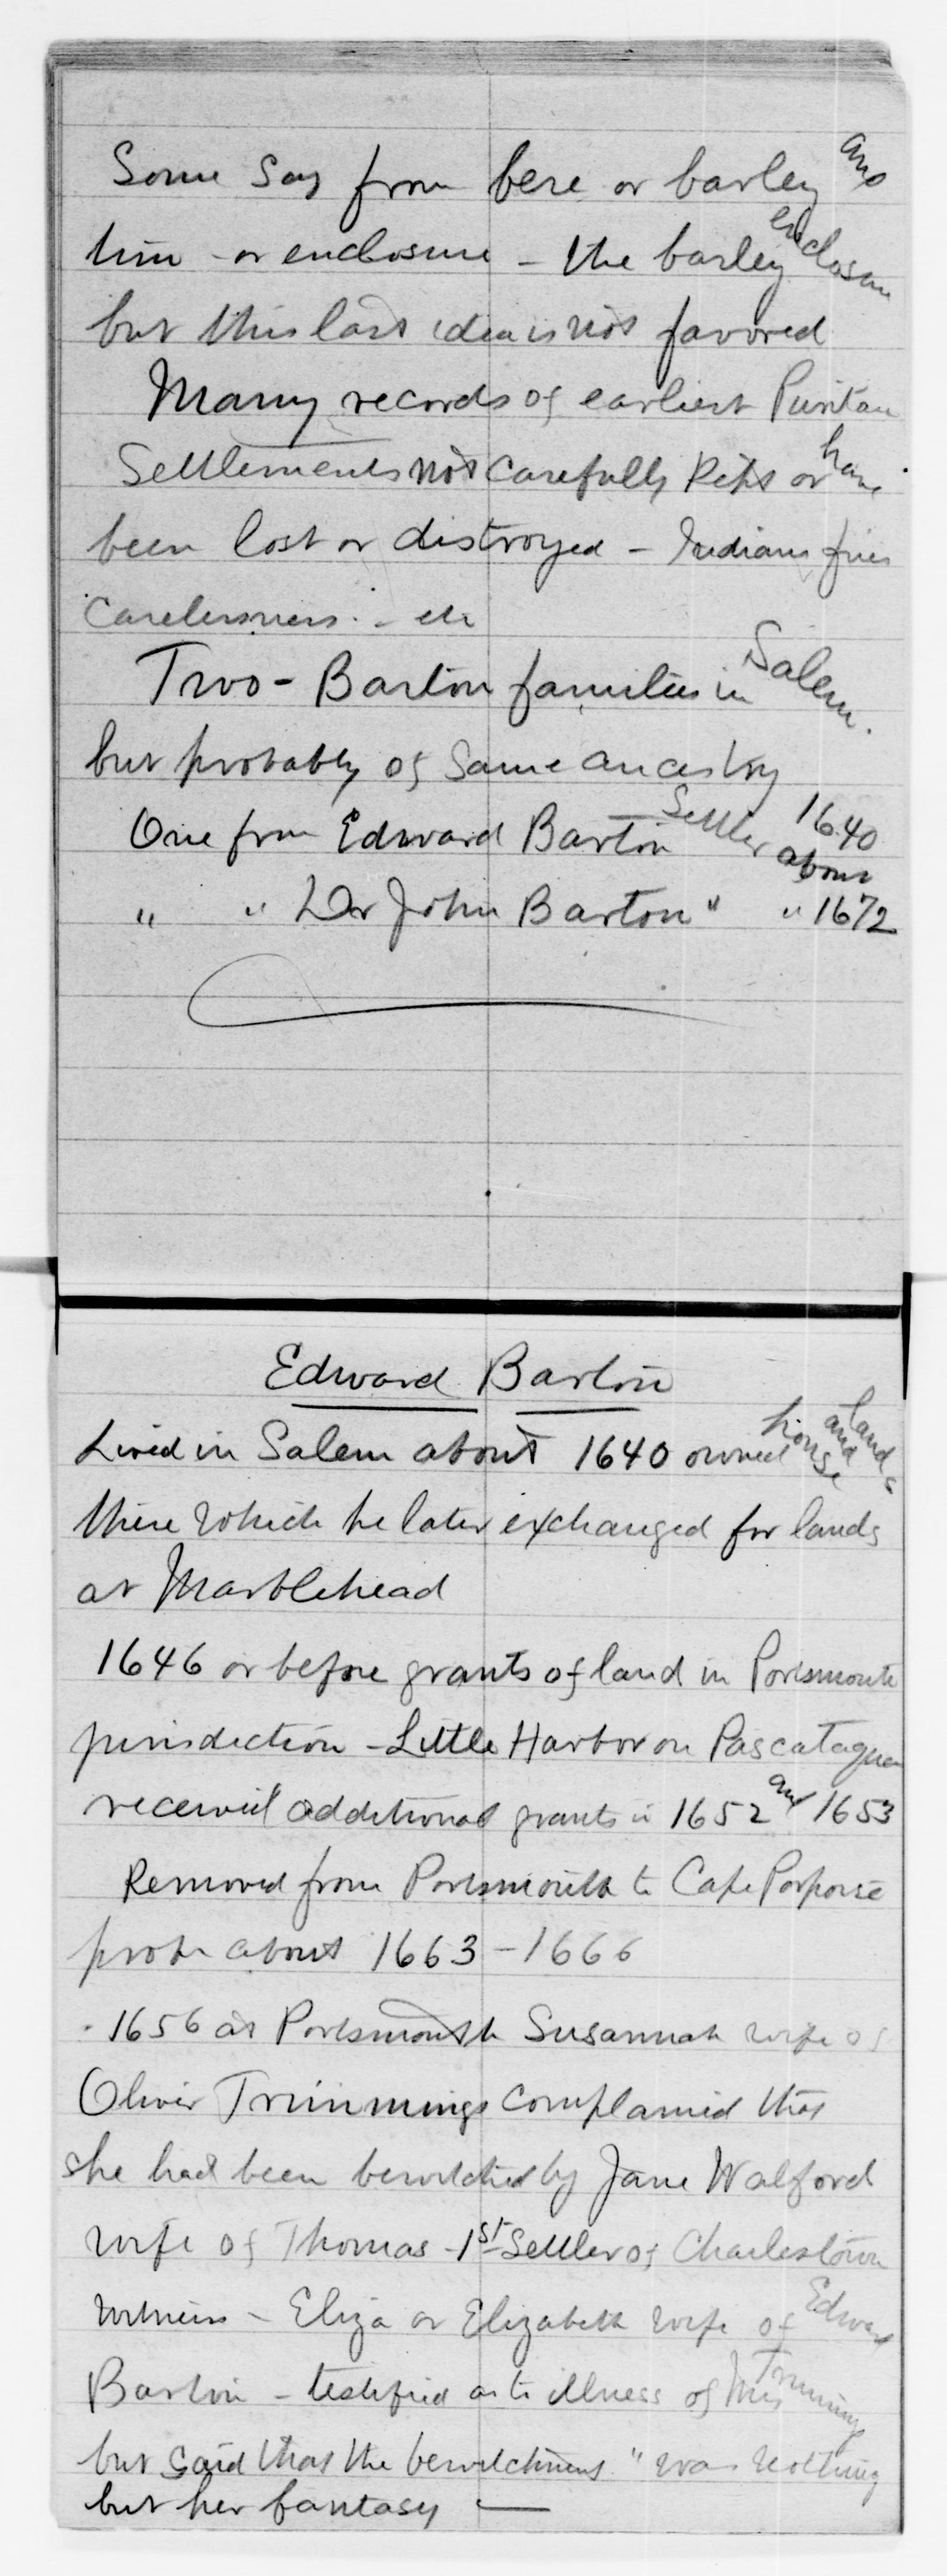 Some say from bere or barley and
tun - or enclosure - the barley enclosure
but this last idea is not favored
Many records of earliest Puritan
Settlements not carefully kept or have
been lost or distroyed - Indians fires
carelessness - etc
Two - Barton families in Salem.
but probably of same ancestry
One from Edward Barton settler about 1640
" " Dr John Barton " " 1672
Edward Barton
Lived in Salem about 1640 owned house and lands
there which he later exchanged for lands
at Marblehead
1646 or before grants of land in Portsmouth
jurisdiction - Little Harbor on Pascataqua
received additional grants in 1652 and 1653
Removed from Portsmouth to Cape Porpoise
prob about 1663 - 1666
1656 at Portsmouth Susannah wife of
Oliver Trimmings complained that
she had been bewitched by Jane Walford
wife of Thomas - 1st Settler of Charlestown
Witness - Eliza or Elizabeth wife of Edward
Barton - testified as to illness of Mrs Trimming
but said that the bewitchment "was nothing
but her fantasy —